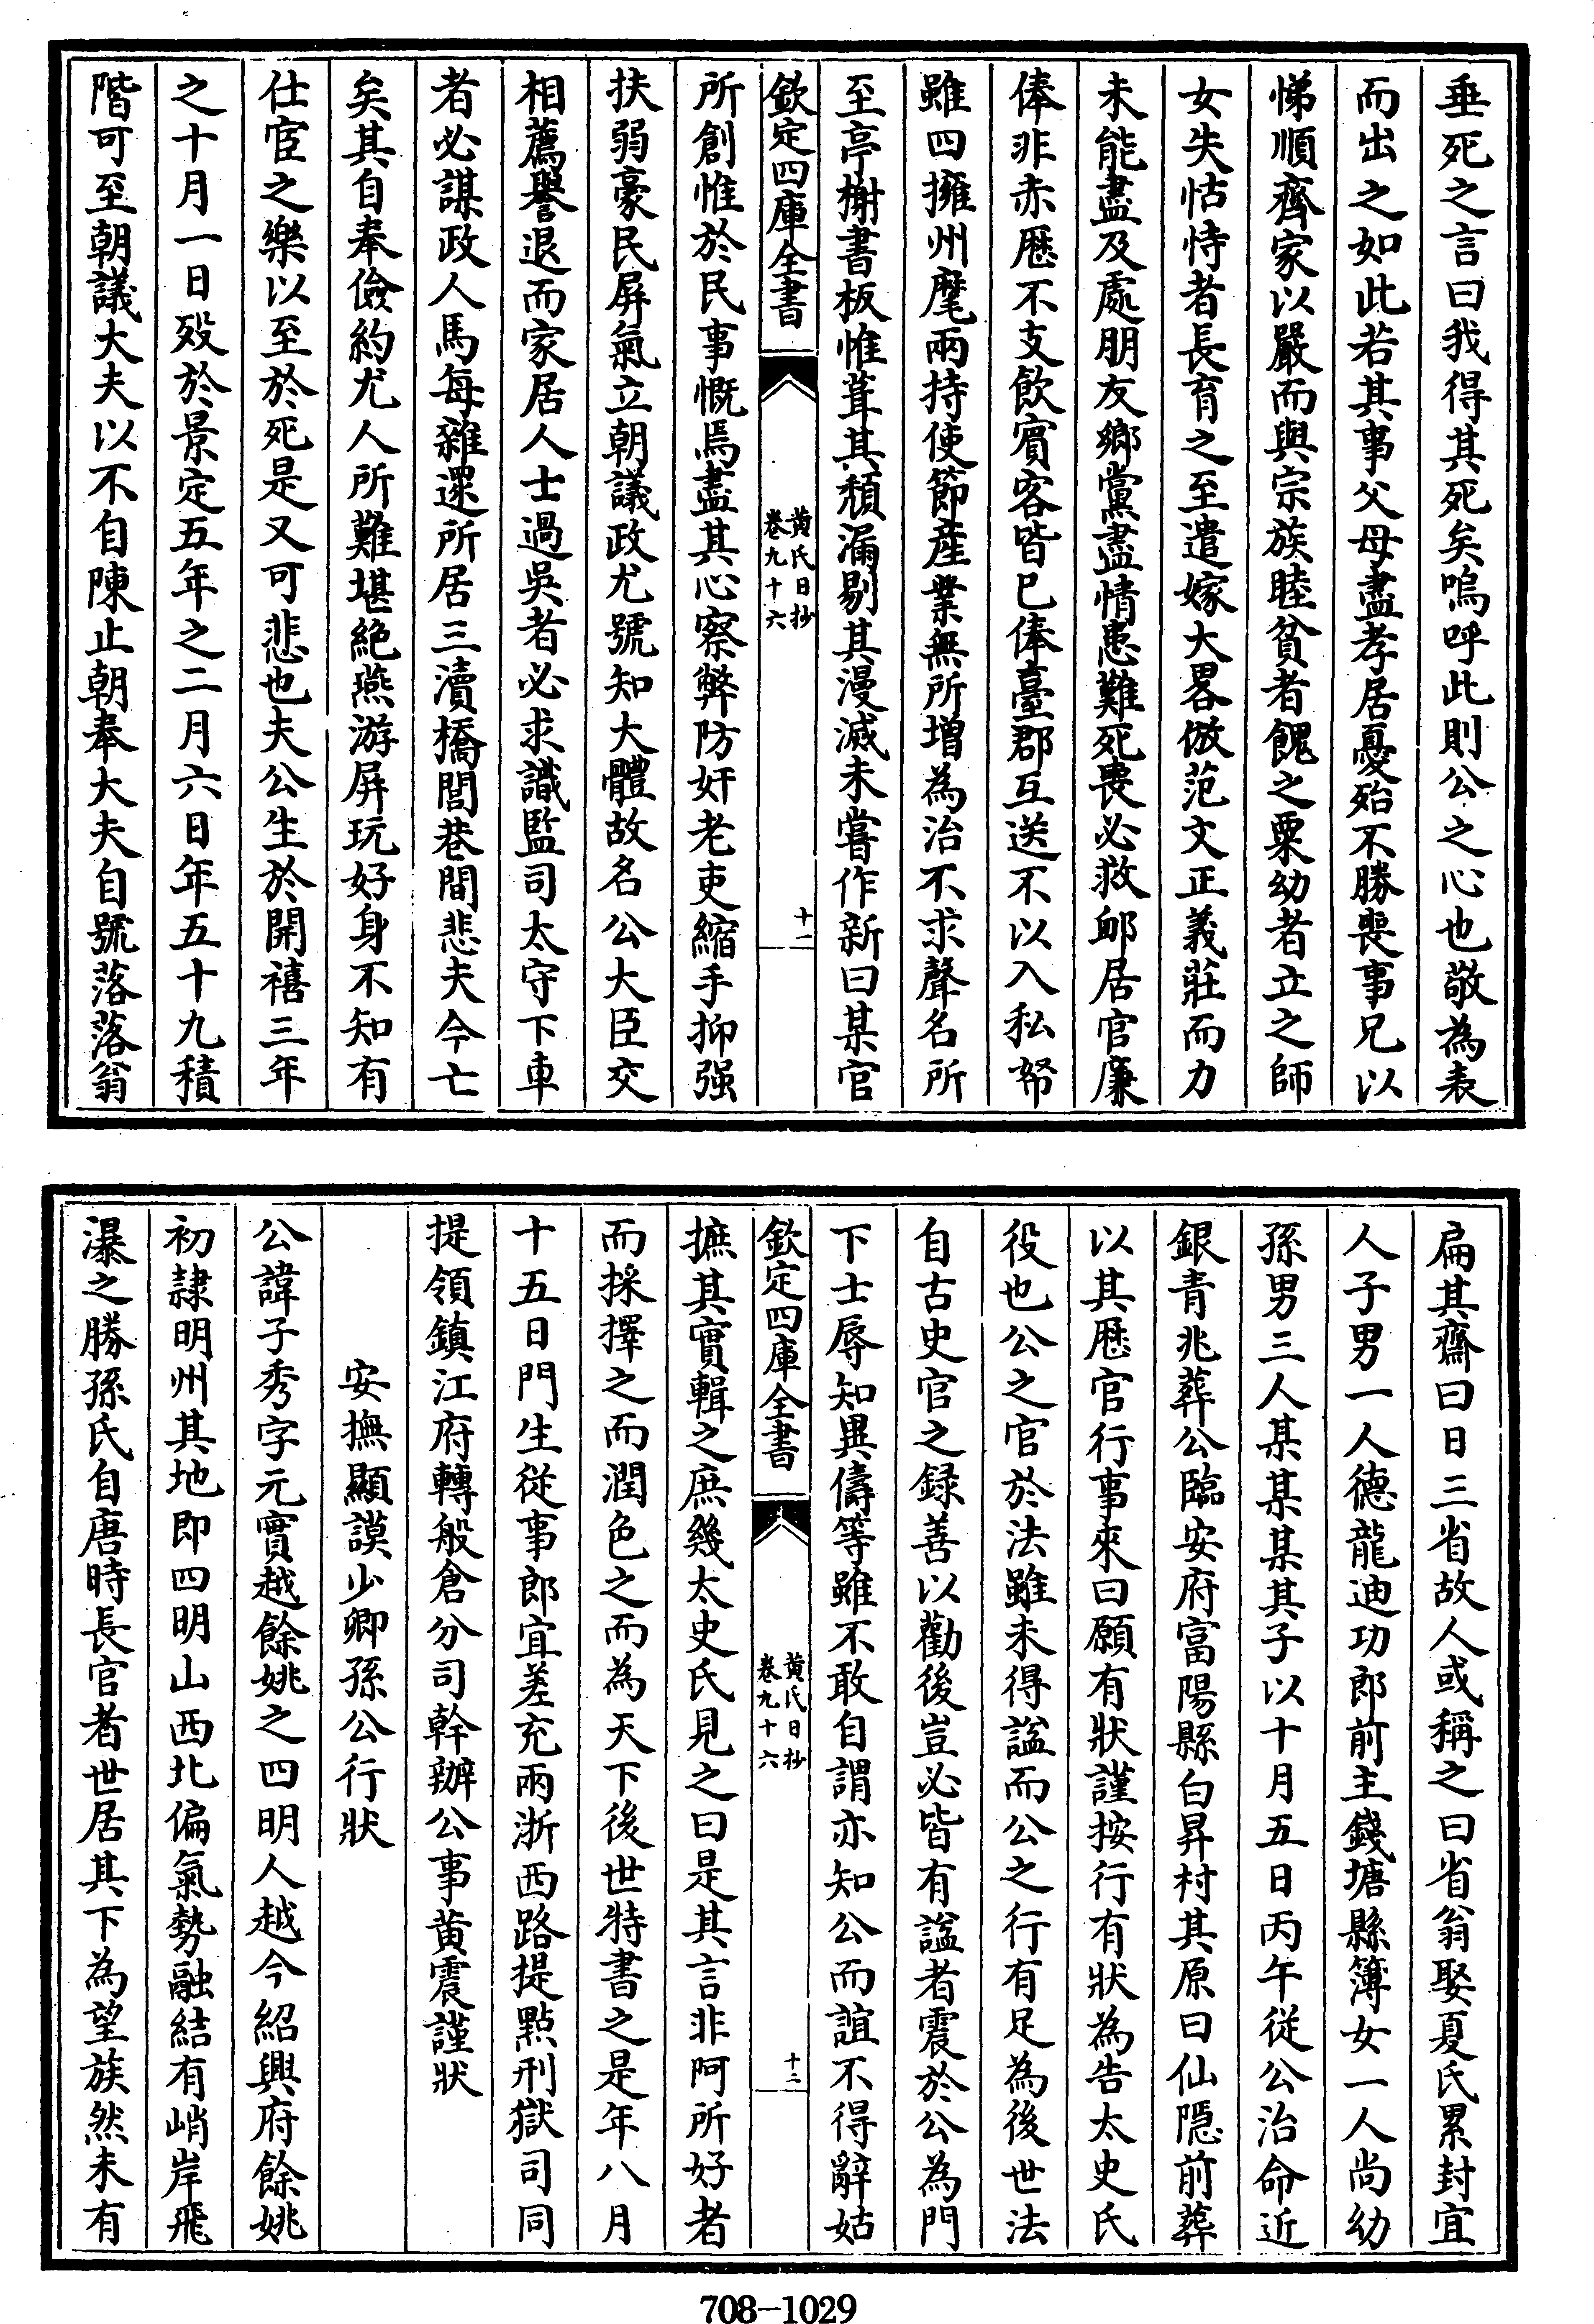 垂死之言曰我得其死矣嗚呼此則公之心也敬為表
而出之如此若其事父母盡孝居憂殆不勝喪事兄以
悌順齊家以嚴而與宗族睦貧者餽之粟幼者立之師
女失怙恃者長育之至遣嫁大畧倣范文正義莊而力
未能盡及處朋友鄉黨盡情患難死喪必救䘏居官廉
俸非赤歴不支飲賓客皆已俸臺郡互送不以入私帑
雖四擁州麾兩持使節產業無所增為治不求聲名所
至亭榭書板惟葺其頹漏剔其漫滅未嘗作新曰某官
欽定四庫全書
黄氏日抄
卷九十六
十一
所創惟於民事慨焉盡其心察弊防奸老吏縮手抑强
扶弱豪民屏氣立朝議政尤號知大體故名公大臣交
相薦譽退而家居人士過吳者必求識監司太守下車
者必謀政人馬每雜遝所居三瀆橋閭巷間悲夫今亡
矣其自奉儉約尤人所難堪絶燕游屏玩好身不知有
仕宦之樂以至於死是又可悲也夫公生於開禧三年
之十月一日殁於景定五年之二月六日年五十九積
階可至朝議大夫以不自陳止朝奉大夫自號落落翁
扁其齋曰日三省故人或稱之曰省翁娶夏氏累封宜
人子男一人德龍迪功郎前主錢塘縣簿女一人尚幼
孫男三人某某某其子以十月五日丙午從公治命近
銀青兆葬公臨安府富陽縣白昇村其原曰仙隱前葬
以其歴官行事來曰願有狀謹按行有狀為告太史氏
役也公之官於法雖未得諡而公之行有足為後世法
自古史官之録善以勸後豈必皆有諡者震於公為門
下士辱知異儔等雖不敢自謂亦知公而誼不得辭姑
欽定四庫全書
黄氏日抄
卷九十六
十二
摭其實輯之庶幾太史氏見之曰是其言非阿所好者
而採擇之而潤色之而為天下後世特書之是年八月
十五日門生從事郎宜差充兩浙西路提點刑獄司同
提領鎮江府轉般倉分司幹辦公事黄震謹狀
安撫顯謨少卿孫公行狀
公諱子秀字元實越餘姚之四明人越今紹興府餘姚
初隷明州其地即四明山西北偏氣勢融結有峭岸飛
瀑之勝孫氏自唐時長官者世居其下為望族然未有
708-1029